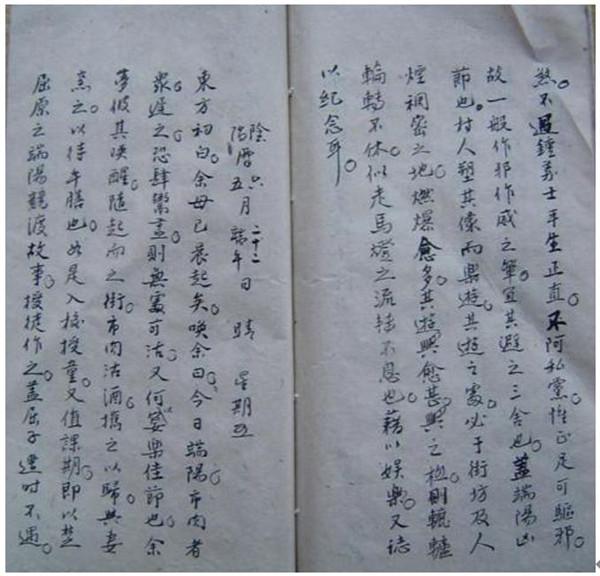 煞。不過鍾義士平生正直。不阿私黨。惟正足可驅邪。
故一般作邪作威之輩。宜其避之三舍也。蓋端陽凶
節也。村人塑其像而樂遊。其遊之處。必于街坊及人
煙稠密之地。燃爆愈多。其遊興愈甚。興之極。則轆轤
輪轉不休。似走馬燈之流轉不息也。藉以娛樂。又誌
以紀念耳。
陰陽曆 六五月 二十二端午日 晴 星期五
東方初白。余母已晨起矣。喚余曰。今日端陽。市肉者
衆。遲之恐肆鬻盡。則無處可沽。又何宴樂佳節也。余
夢彼其喚醒。隨起而之街。市肉沽酒。攜之以歸。與妻
烹之。以待午膳也。如是入校授童。又值課期。即以楚
屈原之端陽競渡故事。授徒作之。蓋屈子遭時不遇。